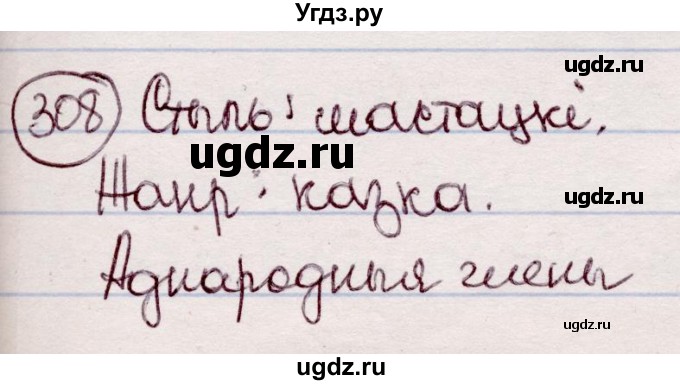 Угдз.ру
ugdz.ru
308 Стыль: мастацкі.
ugdz.ru
Жанр: казка.
ugdz.ru
Аднародныя члены
ugdz.ru
ugdz.ru